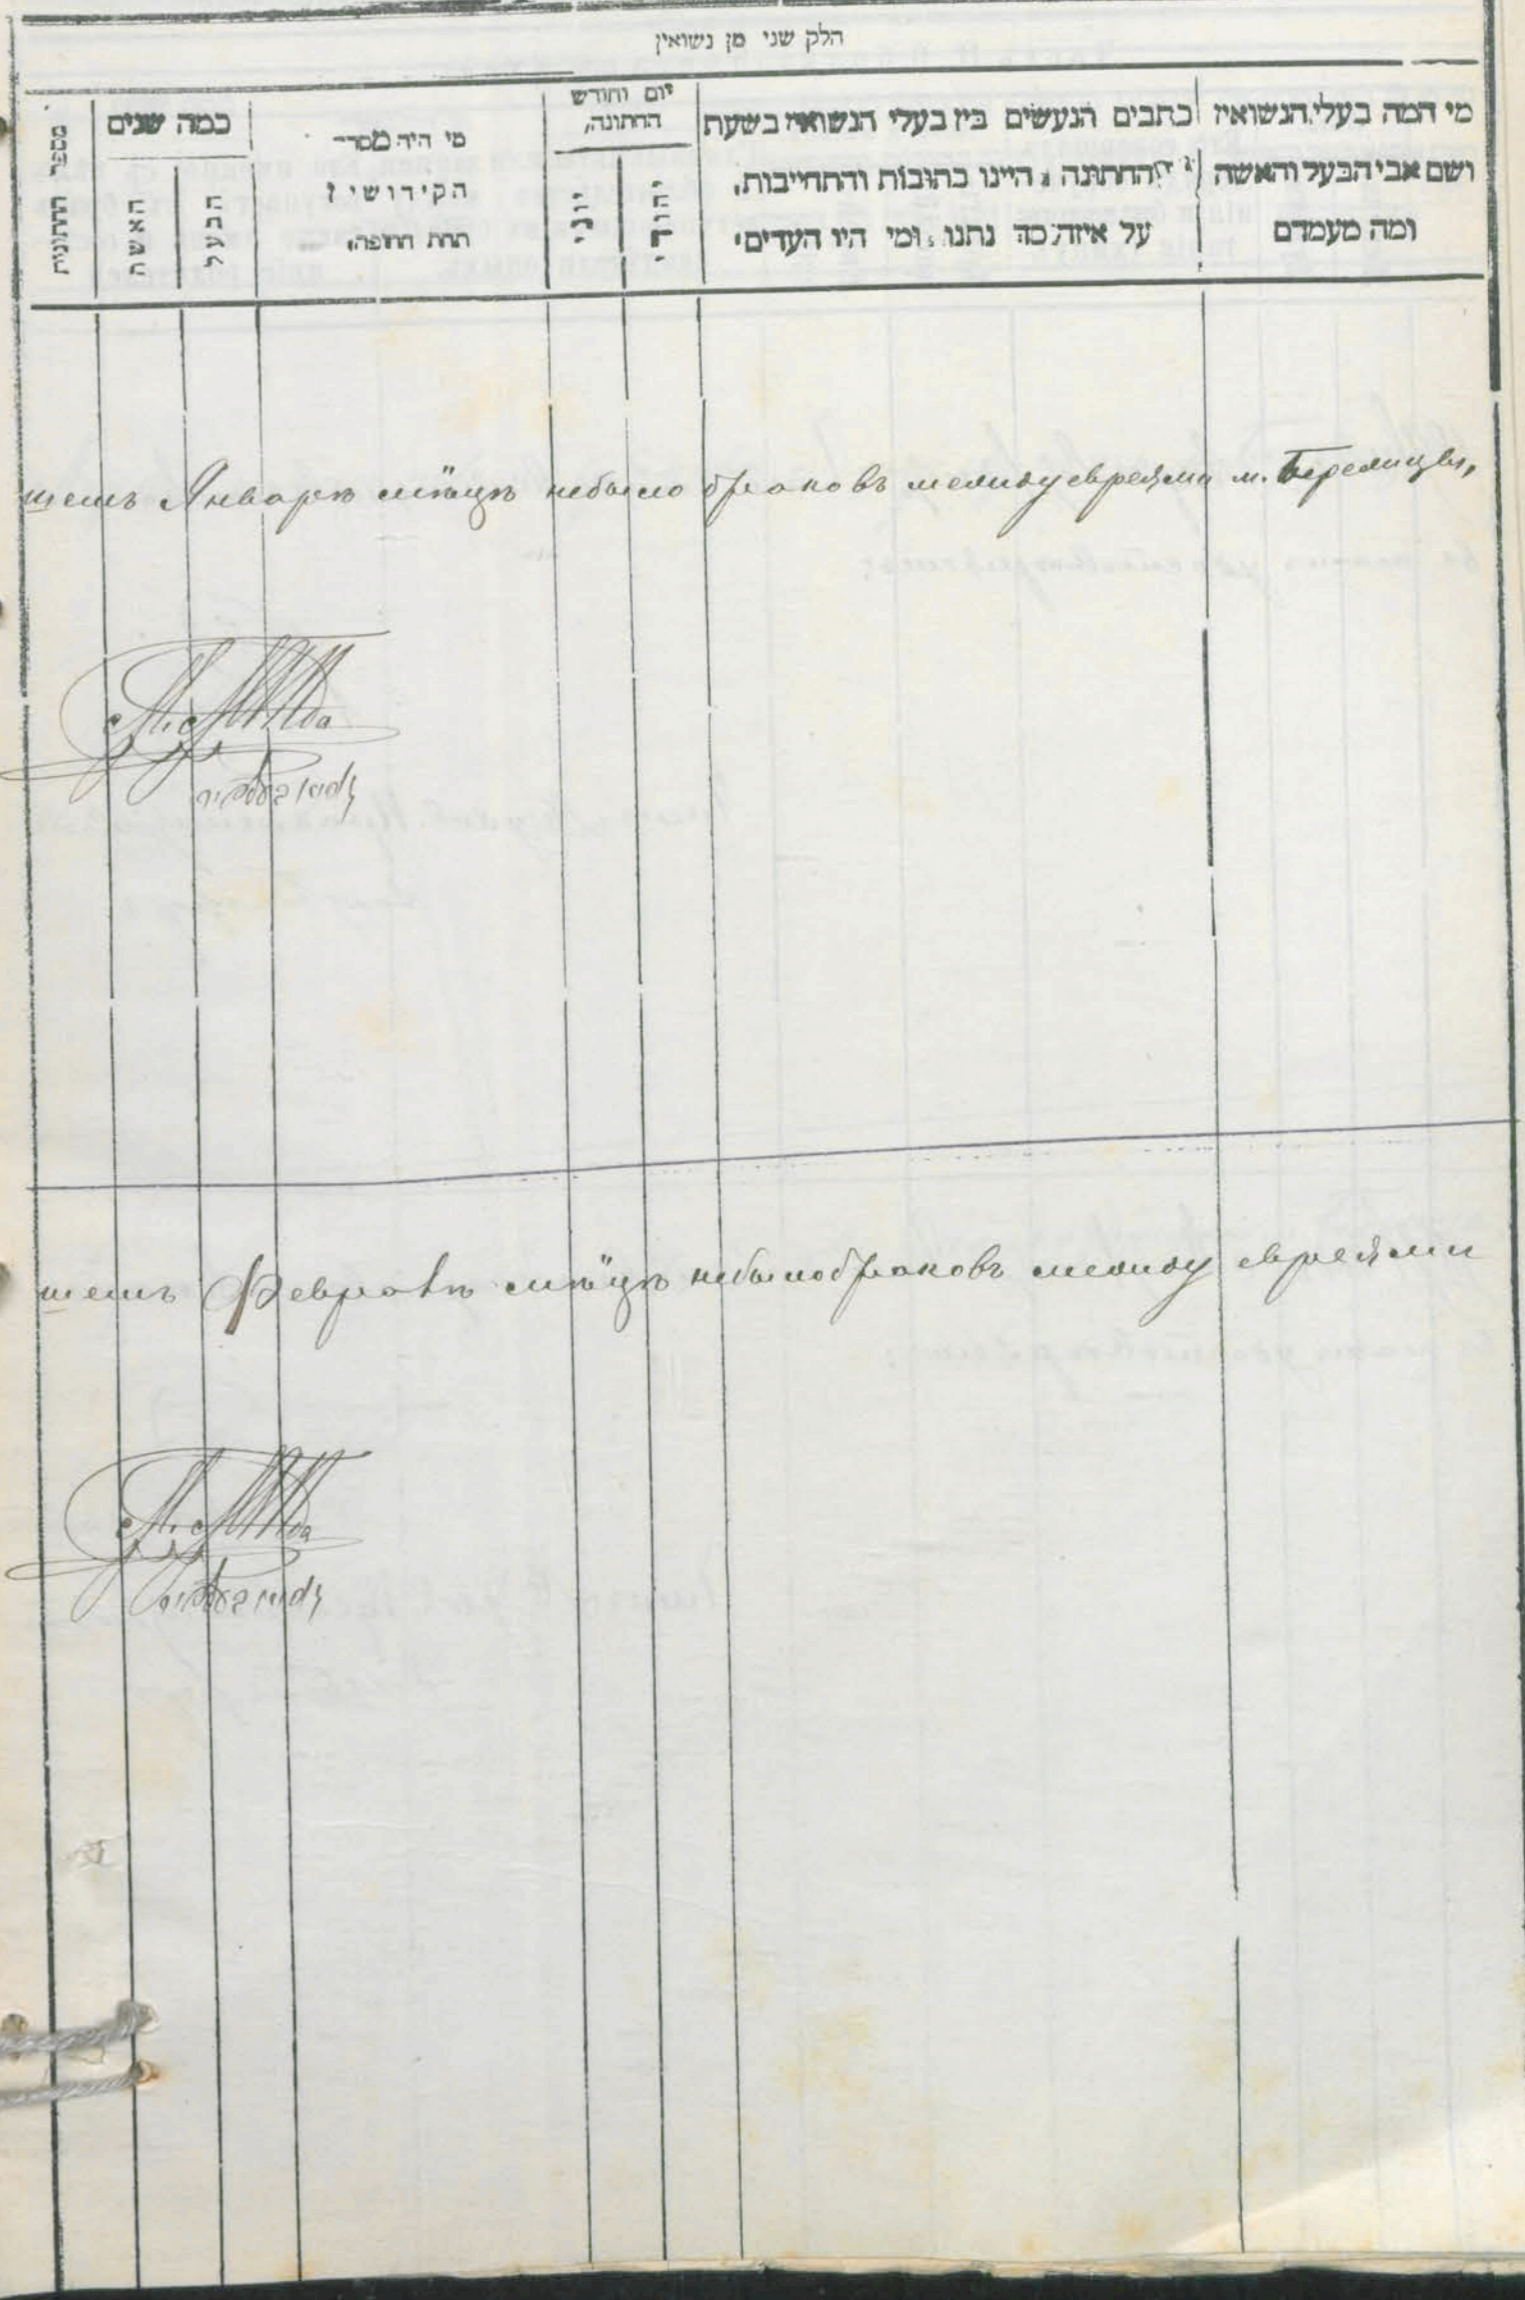 חלק שני מן נשואין
מי המה בעלי הנשואין
ושם אבי הבעל והאשה
ומה מעמדם
כתבים הנעשים בין בעלי הנשואין בשעת
החתונה, היינו כתובות והתחייבות,
על איזה סך נתנו, ומי היו העדים,
יום וחודש
החתונה,
יהודי
יוני
מי היה מסדר
הקידושין
תחת החופה,
כמה שנים
הבעל
האשה
מספר החתונות
шемъ Январѣ мѣцѣ небыло браковъ между евреями м.
шемъ Февралѣ мѣцѣ небыло браковъ между евреями